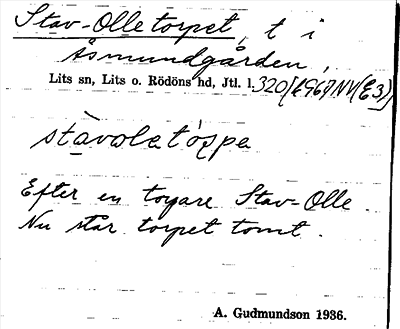 Stav-Olletorpet, t i
Åsmundgården,
Lits sn, Lits o. Rödöns hd, Jtl. l. 320/1967 NV (E3)
Efter en torpare Stav-Olle.
Nu står torpet tomt.
A. Gudmundson 1936.